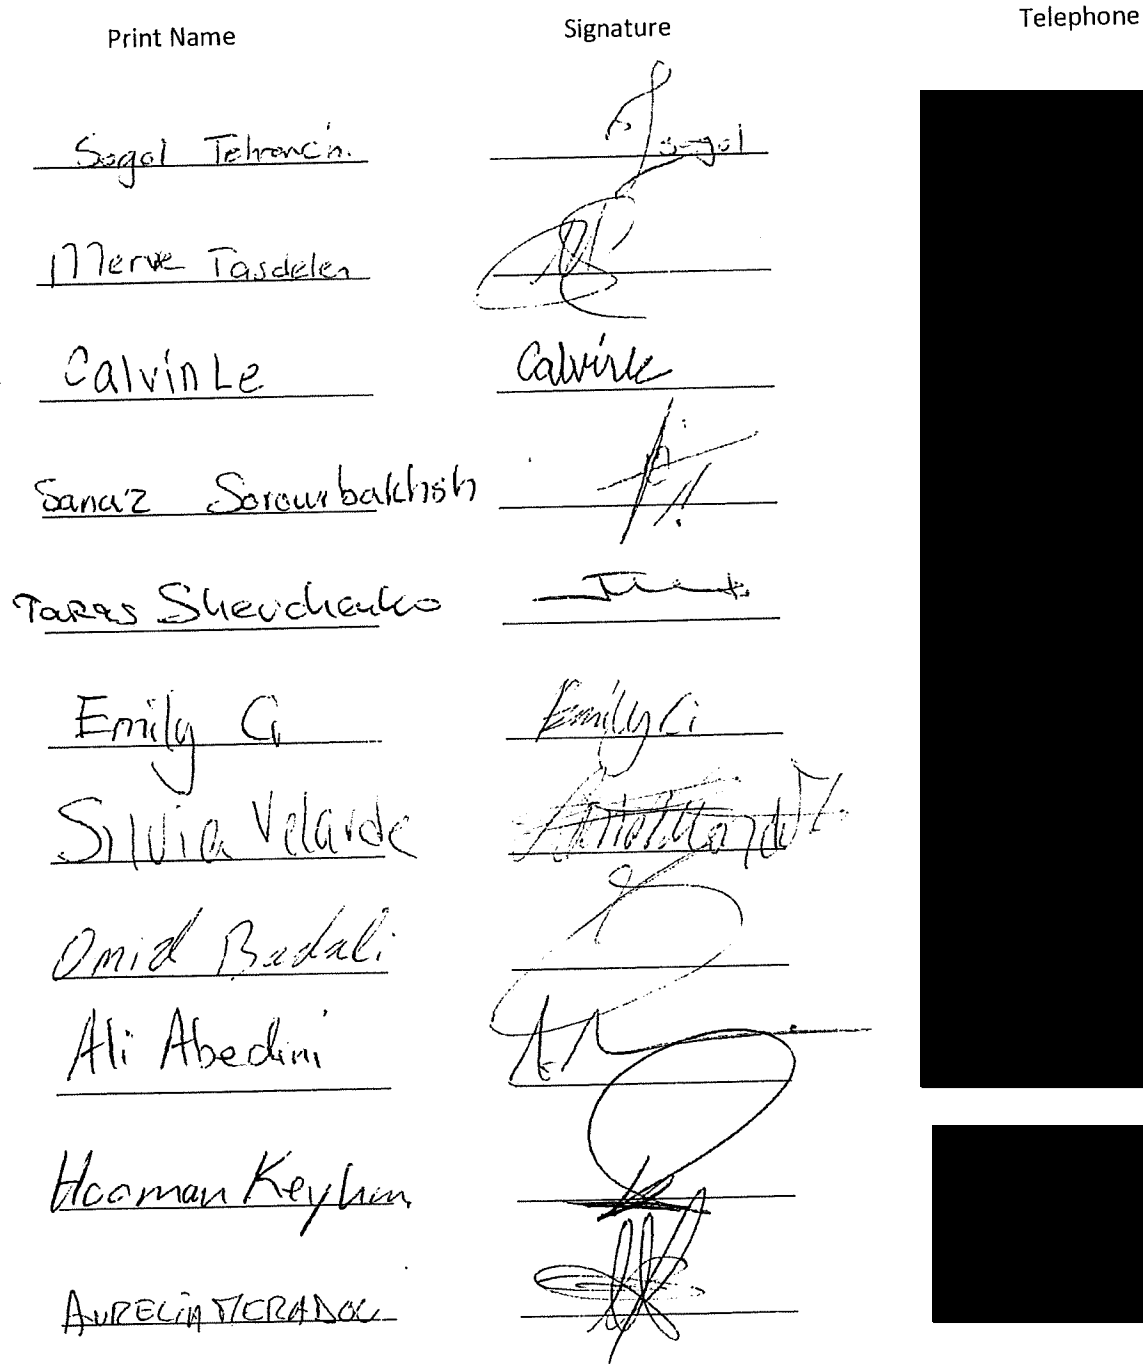 Print Name Signature Telephone
Sogol Tehranchi. Sogol
Merve Tasdelen
Calvin Le Calvin Le
Sanaz Sorourbakhsh
Taras Shevchenko
Emily Ci Emily Ci
Silvia Velarde
Omid Badali
Ali Abedini
Hooman Keyhan
AURELIA MERADOU